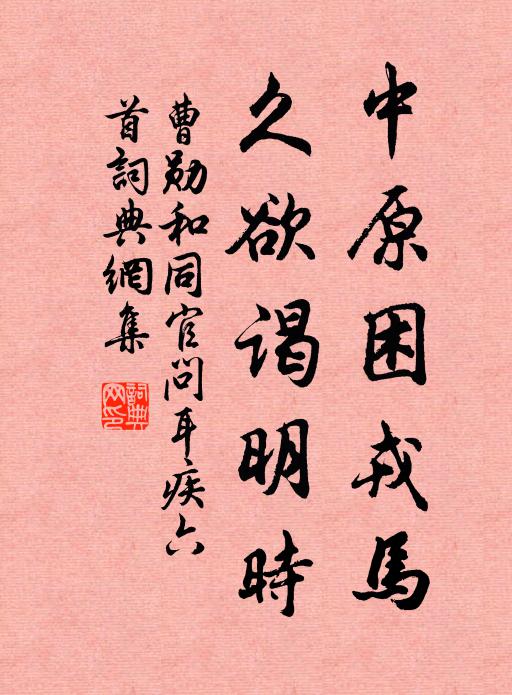 中原困戎馬
久欲謁明時
曹勛和同官問耳疾六
首詞典網集
詞典
网印